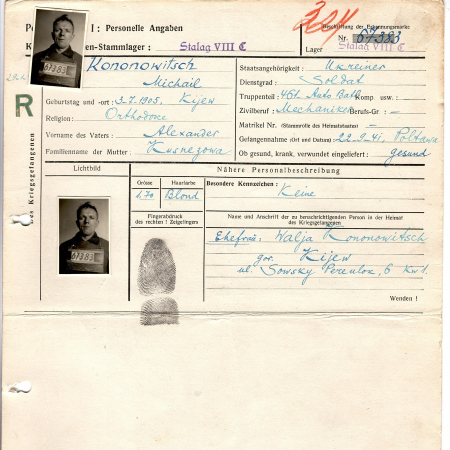 Pe I: Personelle Angaben
Beschriftung der Erkennungsmarke
Nr. 67383
K en-Stammlager: Stalag VIII C
Lager Stalag VIII C
67383
Kononowitsch
Michail
Staatsangehörigkeit: Ukreiner
Dienstgrad: Soldat
R
Geburtstag und -ort: 3.7.1905, Kijew
Truppenteil: 461 Auto Batl. Komp usw.:
Religion: Orthodoxe
Zivilberuf: Mechaniker Berufs-Gr.: -
Vorname des Vaters: Alexander
Matrikel Nr. (Stammrolle des Heimatstaates): -
Gefangennahme (Ort und Datum): 22.9.41, Poltawa
Familienname der Mutter: Kusnezowa
Ob gesund, krank, verwundet eingeliefert: gesund
des Kriegsgefangenen
Lichtbild
Nähere Personalbeschreibung
Grösse
Haarfarbe
Besondere Kennzeichen:
1,70
Blond
Keine
67383
Fingerabdruck
des rechten ! Zeigefingers
Name und Anschrift der zu benachrichtigenden Person in der Heimat
des Kriegsgefangenen
Ehefrau: Walja Kononowitsch
gor. Kijew
ul. Sowsky Pereulok, 6 Kw 1.
Wenden !